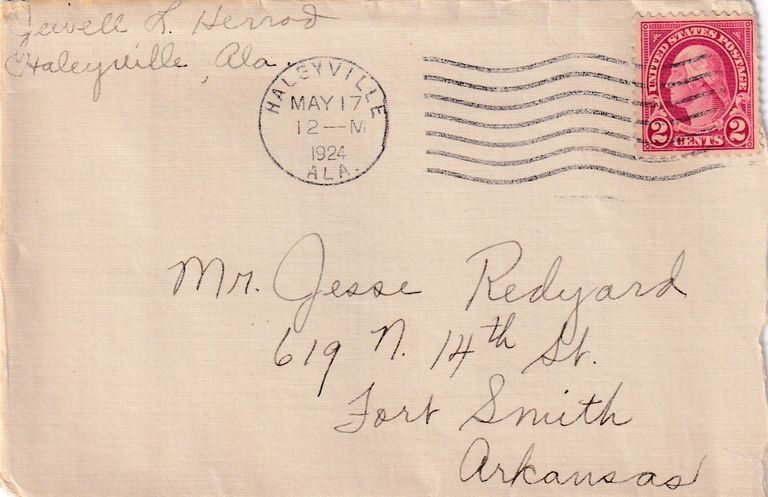 Jewell L. Herrod
Haleyville, Ala.
HALEYVILLE
MAY 17
12—M
1924
ALA.
UNITED STATES POSTAGE
2 CENTS 2
Mr. Jesse Redyard
619 N. 14th St.
Fort Smith
Arkansas